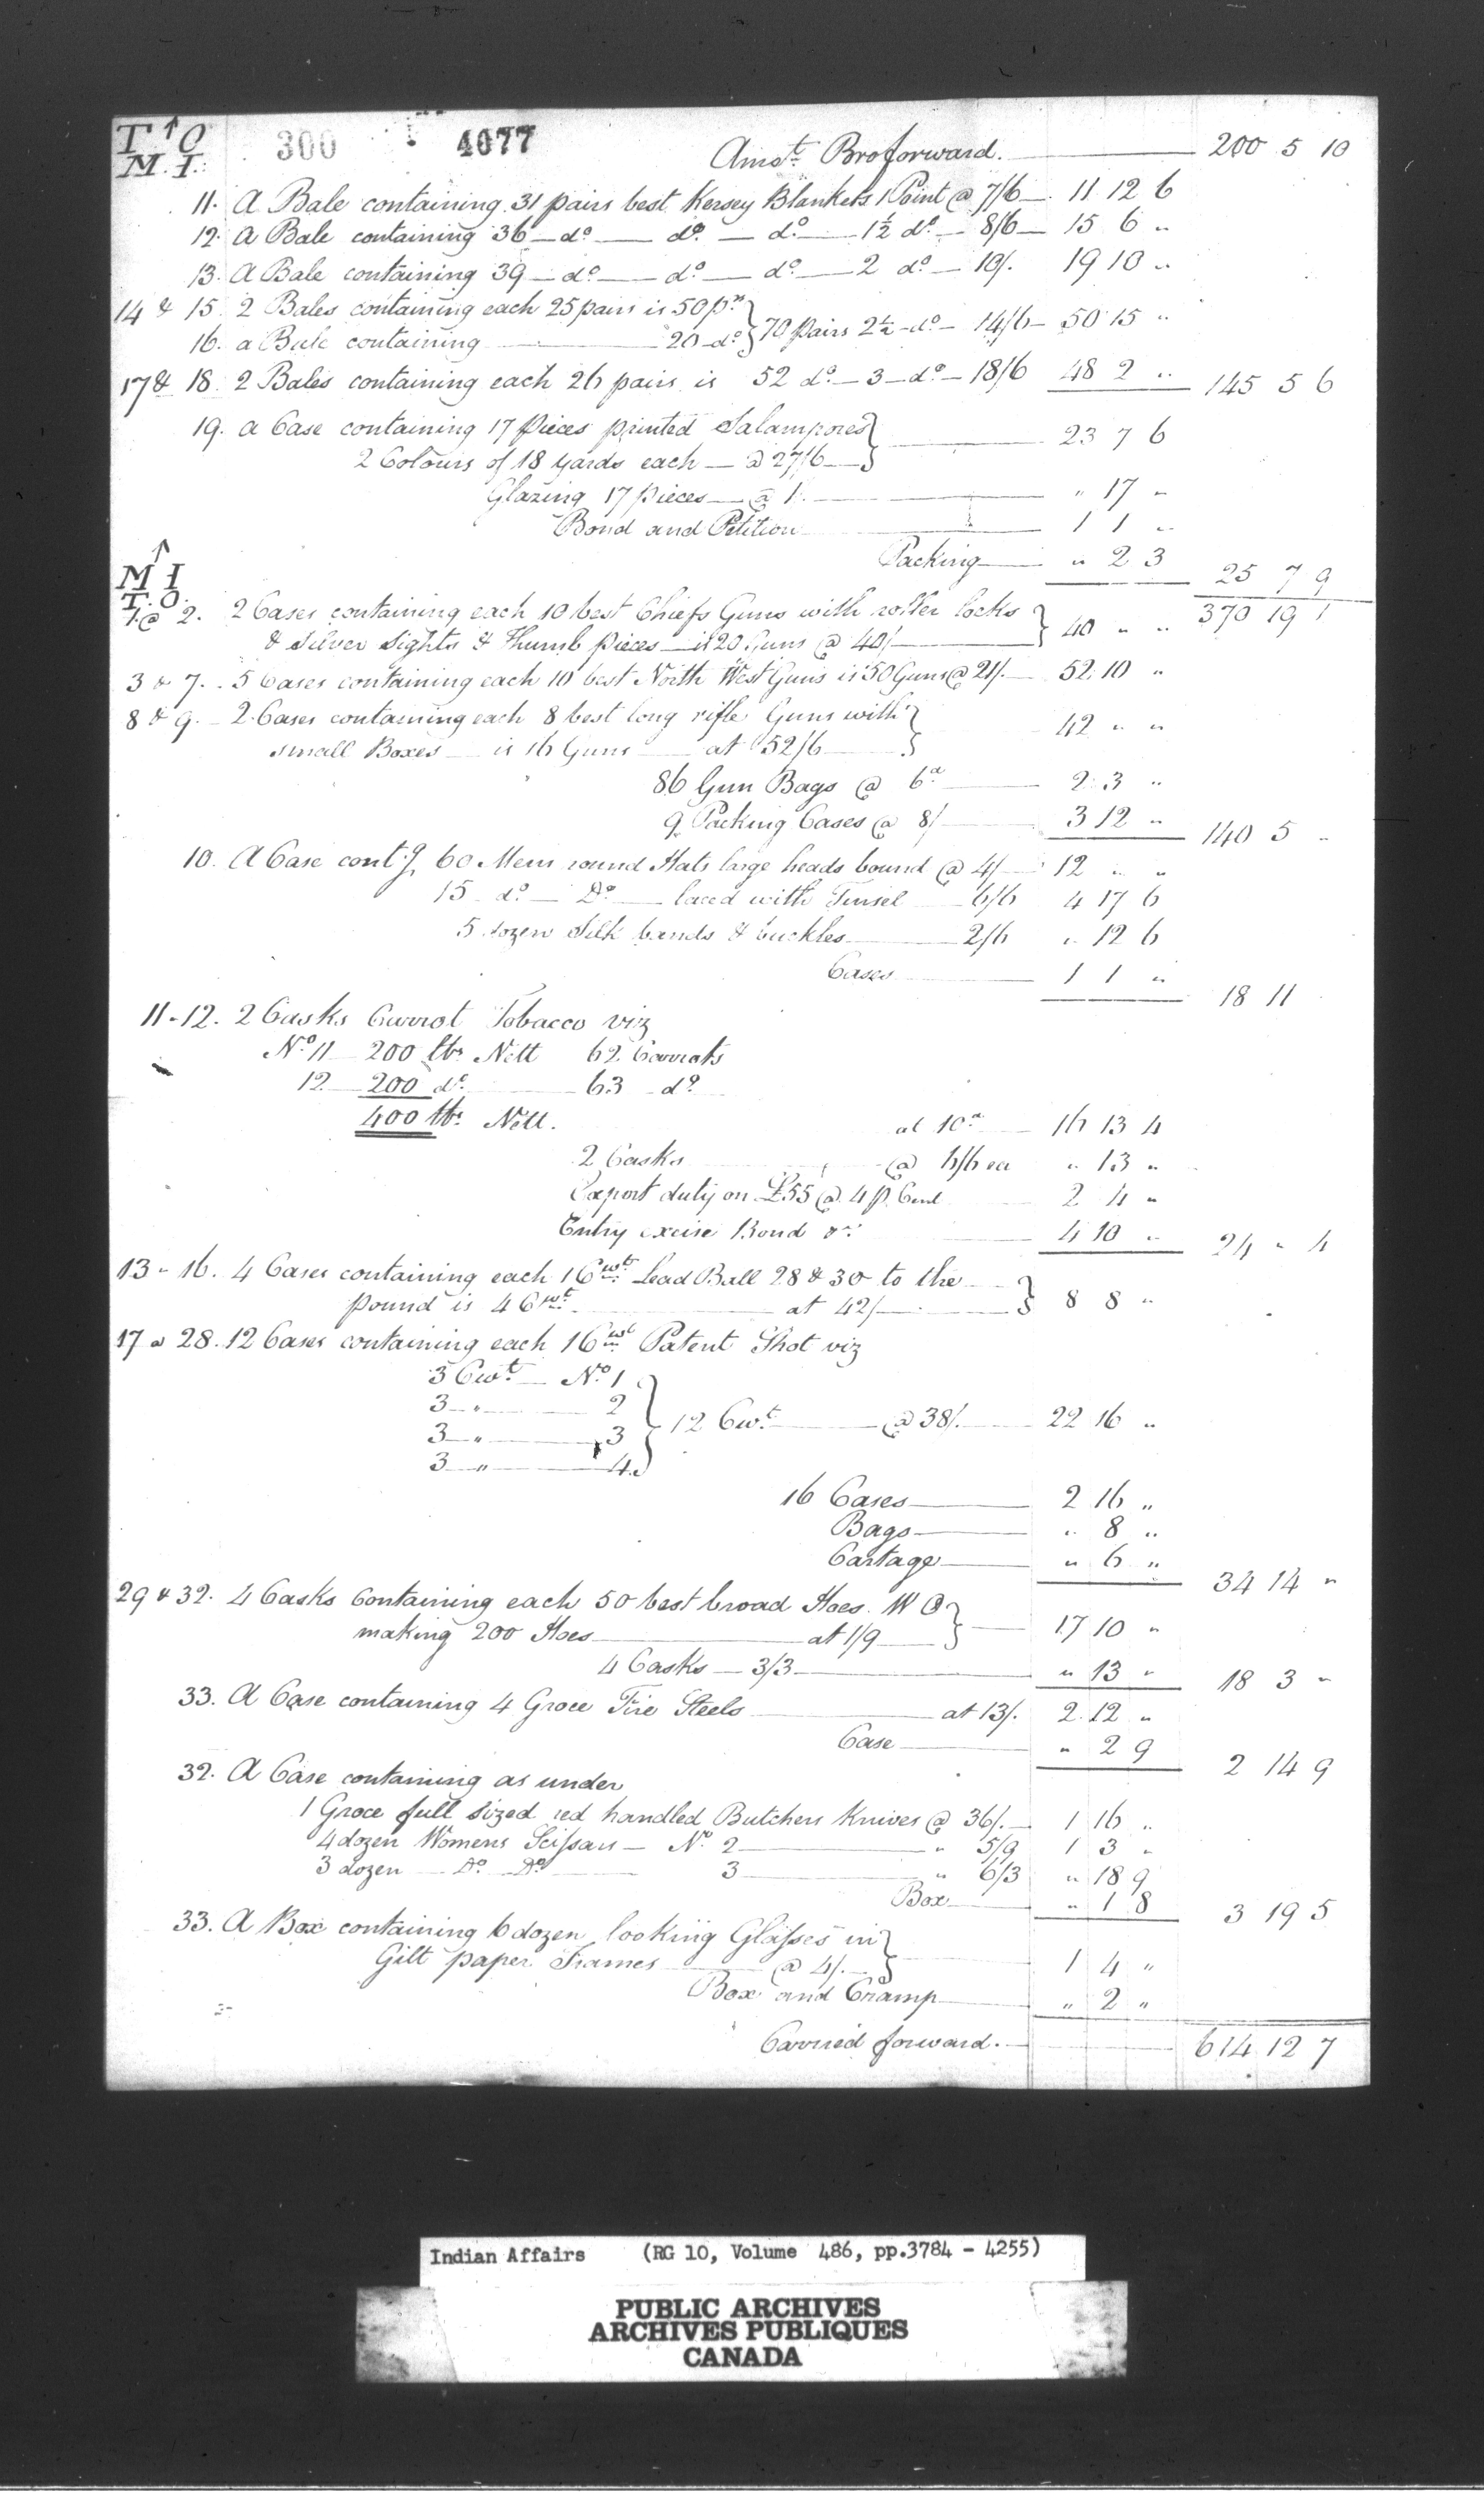 T ↑ O
M. I.
300 4077
Amot. Broforward. 200 5 10
11. A Bale containing 31 pairs best Kersey Blankets 1 Point @ 7/6 11 12 6
12. A Bale containing 36 — do — do — do — 1½ do — 8/6 — 15 6 "
13. A Bale containing 39 — do — do — do — 2 do — 10/. 19 10 "
14 & 15. 2 Bales containing each 25 pairs is 50 prs
16. a Bale containing 20 do } 70 pairs 2½ do — 14/6 — 50 15 "
17 & 18. 2 Bales containing each 26 pairs is 52 do — 3 — do — 18/6 48 2 " 145 5 6
19. a Case containing 17 Pieces printed Salampores
2 Colours of 18 yards each — @ 27/6 } 23 7 6
Glazing 17 pieces — @ 1. " 17 "
Bond and Petition 1 1 "
Packing " 2 3 25 7 9
↑
M I
T. O.
370 19 1
1 @ 2. 2 Cases containing each 10 best Chiefs Guns with roller locks
& Silver Sights & Thumb pieces — is 20 Guns @ 40/ } 40 " "
3 & 7. 5 Cases containing each 10 best North West Guns is 50 Guns @ 21/. 52 10 "
8 & 9. 2 Cases containing each 8 best long rifle Guns with
small Boxes — is 16 Guns — at 52/6 } 42 " "
86 Gun Bags @ 6d 2 3 "
9 Packing Cases @ 8/ 3 12 " 140 5 "
10. A Case contg. 60 Mens round Hats large heads bound @ 4/ 12 " "
15 do — Do — laced with Tinsel 6/6 4 17 6
5 dozen Silk bands & buckles 2/6 " 12 6
Cases 1 1 " 18 11
11-12. 2 Casks Carrot Tobacco viz
No. 11 200 lbs Nett 62 Carrots
12 200 do 63 do
400 lbs. Nett. at 10d 16 13 4
2 Casks @ 6/6 ea " 13 "
Export duty on £55 @ 4 p. Cent 2 4 "
Entry excise Bond &c 4 10 " 24 " 4
13 - 16. 4 Cases containing each 1 Cwt. Lead Ball 28 & 30 to the
pound is 4 Cwt. at 42/ } 8 8 "
17 a 28. 12 Cases containing each 1 Cwt Patent Shot viz
3 Cwt — No. 1
3 " 2
3 " 3 } 12 Cwt. @ 38/. 22 16 "
3 " 4
16 Cases 2 16 "
Bags " 8 "
Cartage " 6 " 34 14 "
29 & 32. 4 Casks containing each 50 best broad Hoes. W O
making 200 Hoes at 1/9 } 17 10 "
4 Casks — 3/3 " 13 " 18 3 "
33. A Case containing 4 Groce Fire Steels at 13/. 2 12 "
Case " 2 9 2 14 9
32. A Case containing as under
1 Groce full sized red handled Butchers Knives @ 36/. 1 16 "
4 dozen Womens Scissars — No. 2 " 5/9 1 3 "
3 dozen Do. Do 3 " 6/3 " 18 9
Box " 1 8 3 19 5
33. A Box containing 6 dozen looking Glasses in
Gilt paper Frames @ 4/. } 1 4 "
Box and Cramp " 2 "
Carried forward. 614 12 7
Indian Affairs (RG 10, Volume 486, pp.3784 - 4255)
PUBLIC ARCHIVES
ARCHIVES PUBLIQUES
CANADA